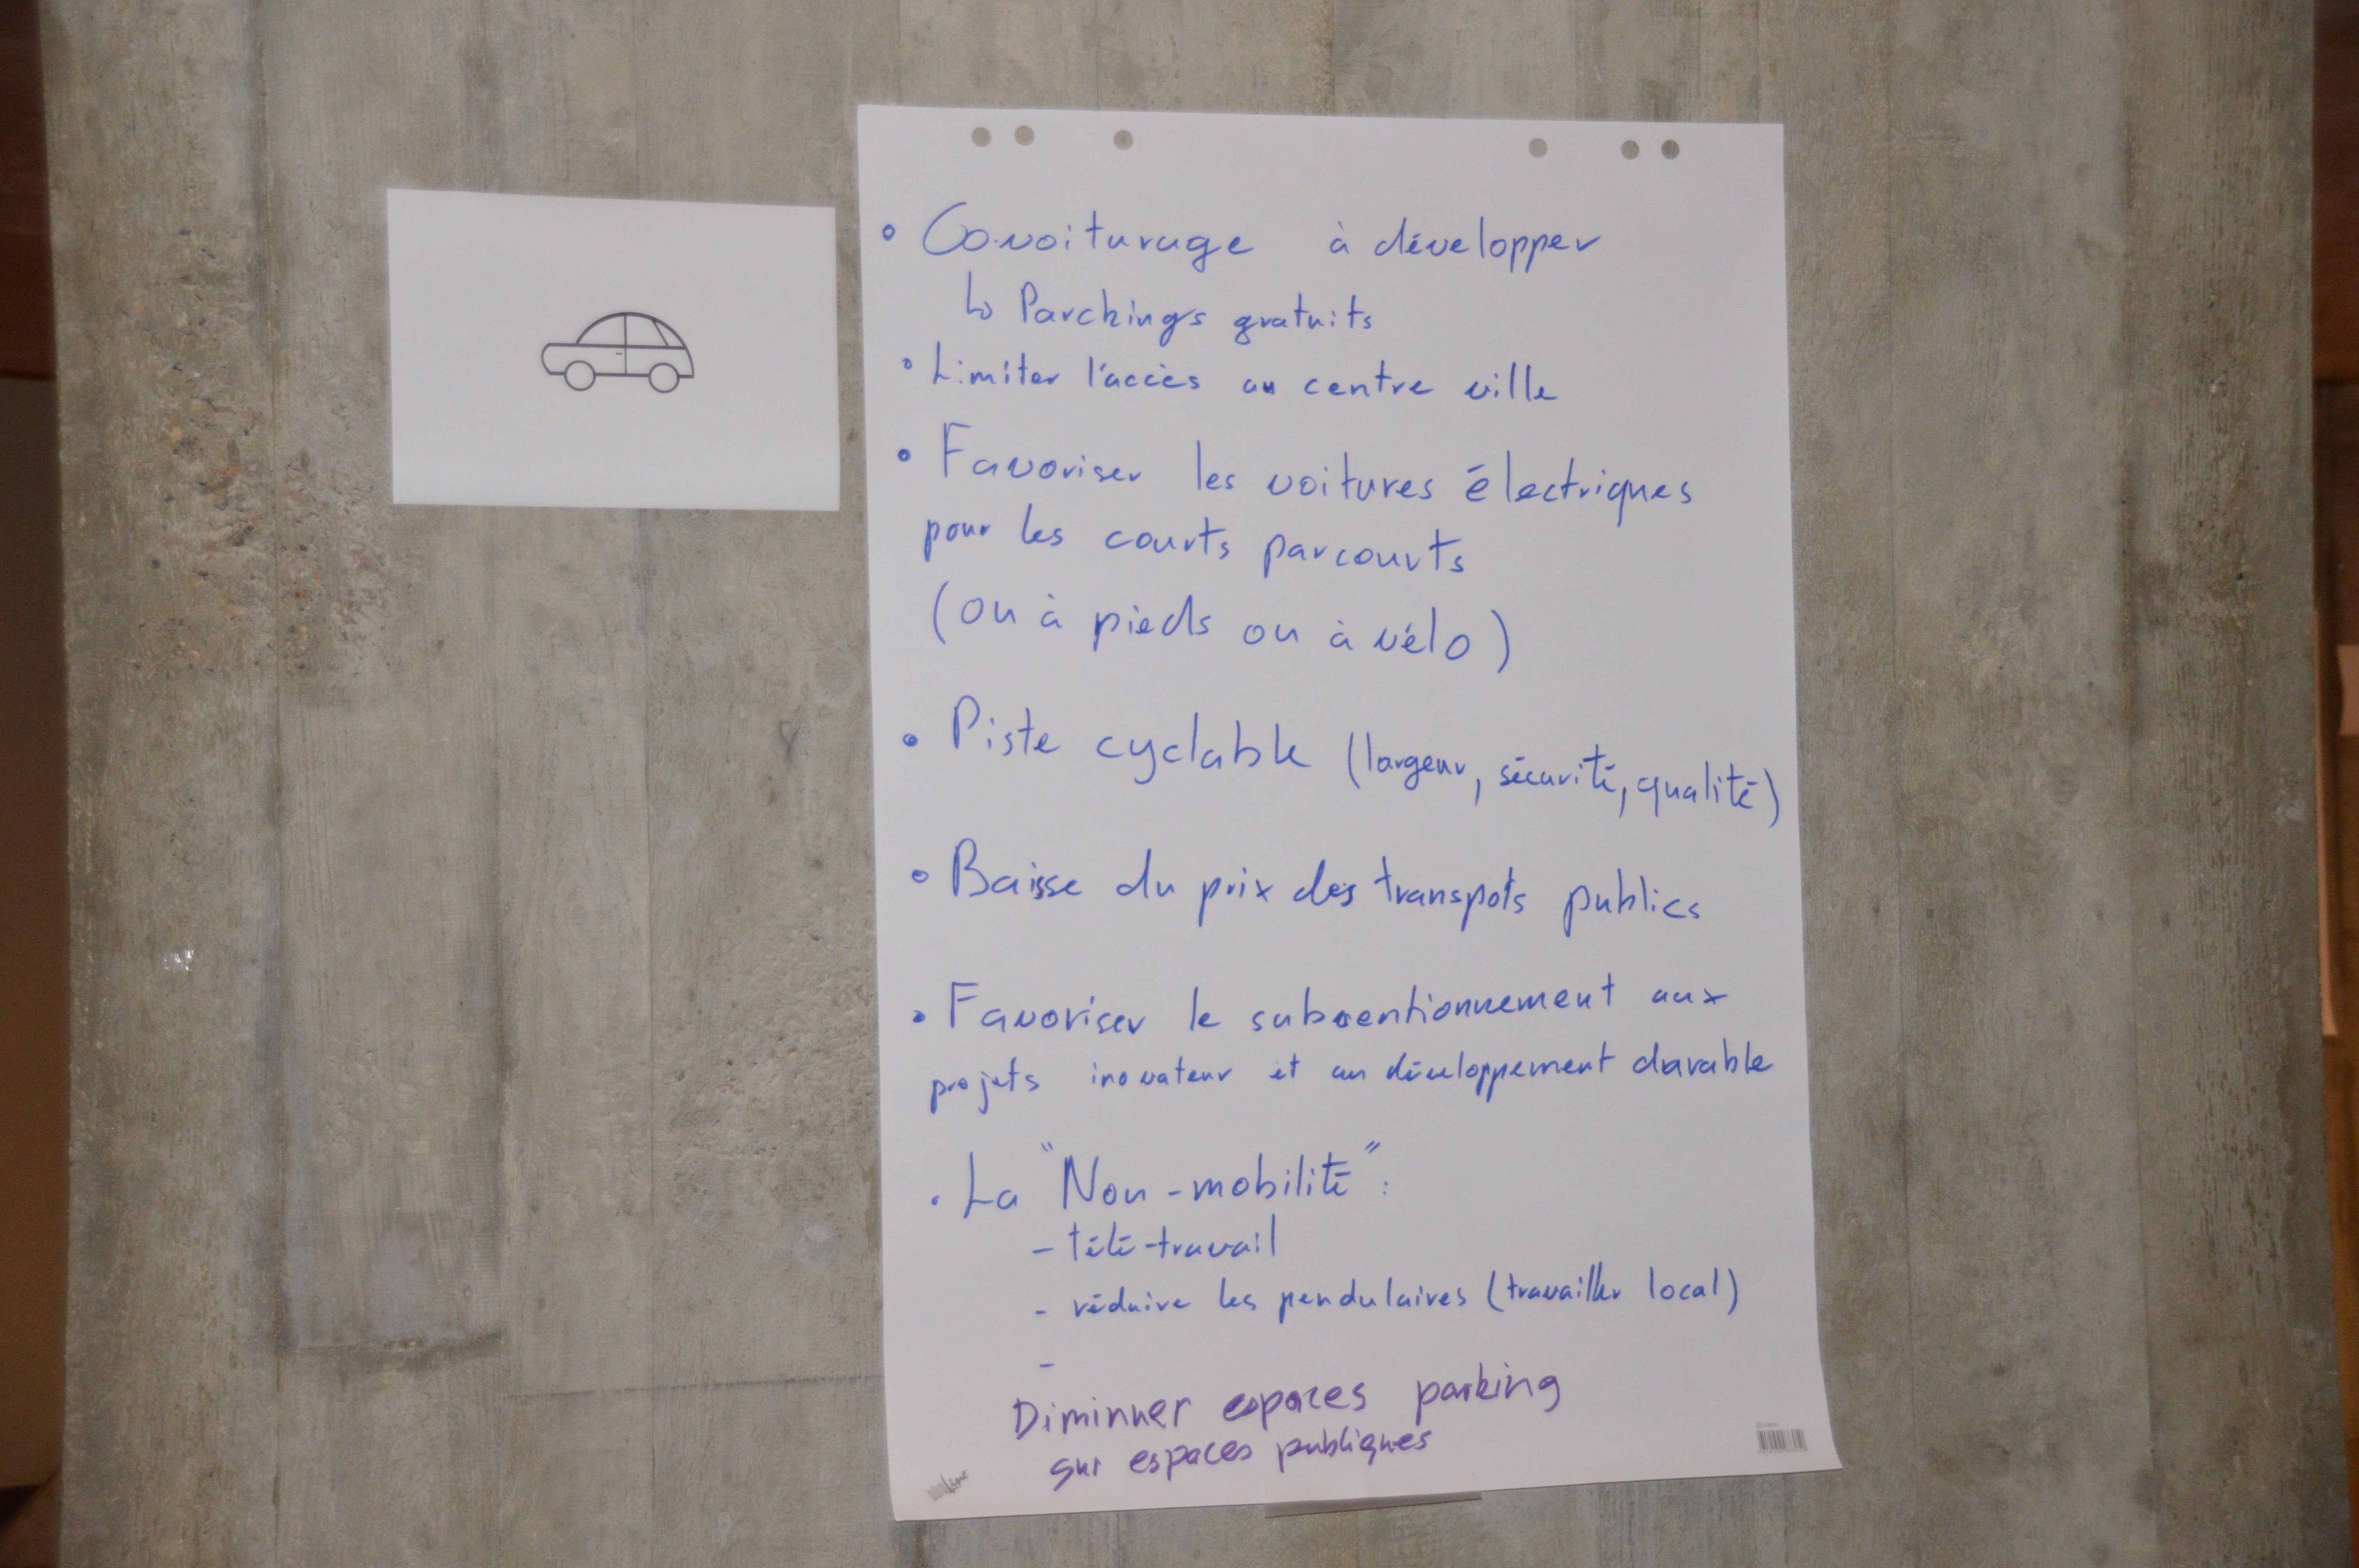 • Covoiturage à développer
↳ Parckings gratuits
• Limiter l'accès au centre ville
• Favoriser les voitures électriques
pour les courts parcourts
(ou à pieds ou à vélo)
• Piste cyclable (largeur, sécurité, qualité)
• Baisse du prix des transpots publics
• Favoriser le subventionnement aux
projets inovateur et au développement durable
• La "Non-mobilité":
- télé-travail
- réduire les pendulaires (travailler local)
-
Diminuer espaces parking
sur espaces publiques